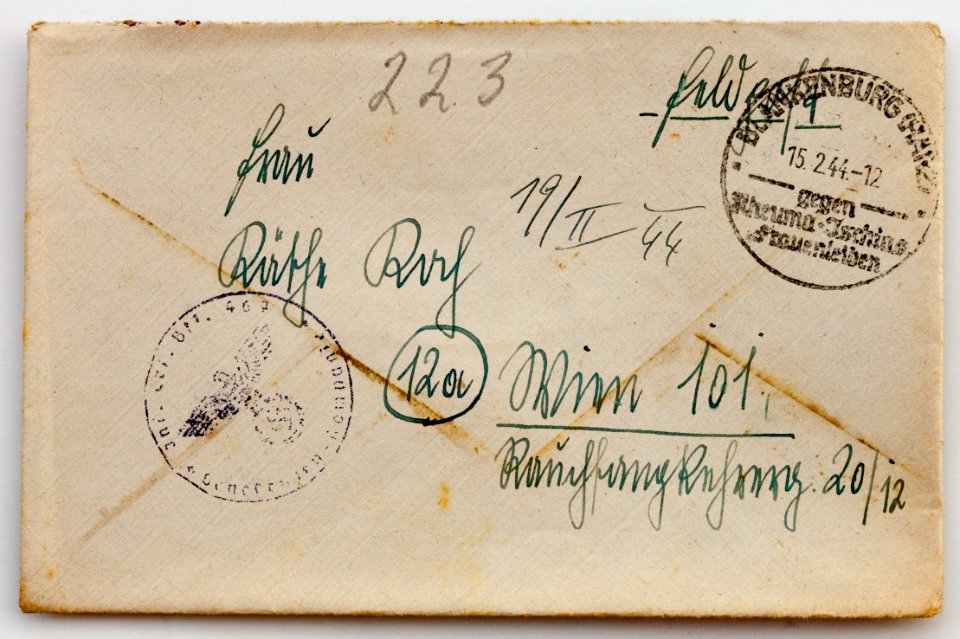 223
Feldpost
BLANKENBURG (HARZ)
15.2.44.-12
gegen
Rheuma-Ischias
Frauenleiden
Frau
19/II 44
Käthe Koch
12a
Wien 101,
Rauchfangkehrerg. 20/12